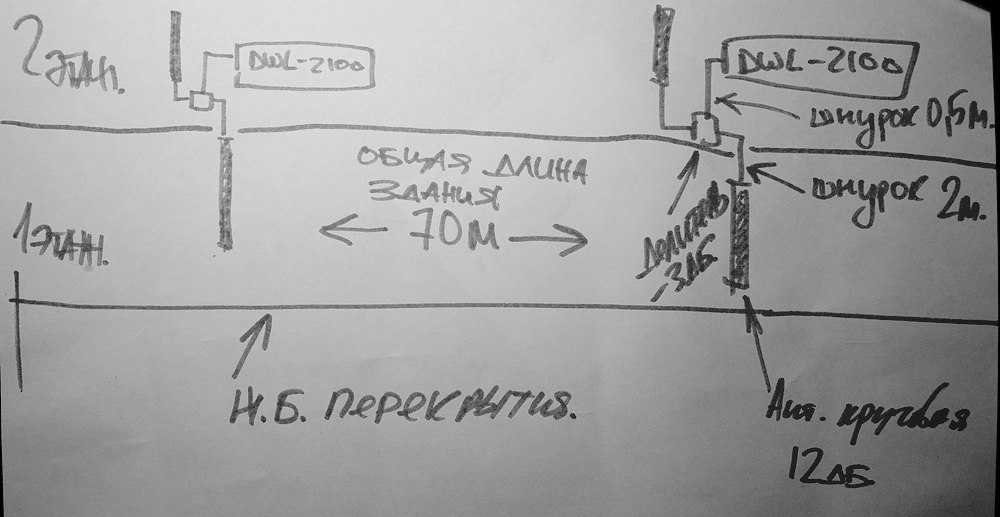 2 этаж.
DWL-2100
DWL-2100
шнурок 0,5м.
общая длина
здания
70м
шнурок 2м.
1 этаж.
делитель
-3дБ.
Ж.Б. перекрытия.
Ант. круговая
12дБ